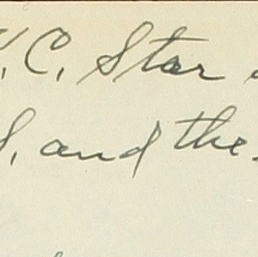 C. Star
, and the